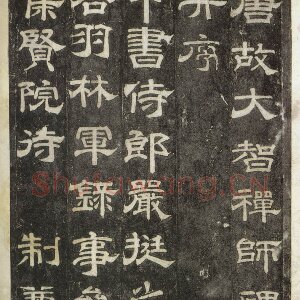 唐故大智禪師碑
并序
中書侍郎嚴挺之
右羽林軍錄事參
集賢院待 制兼